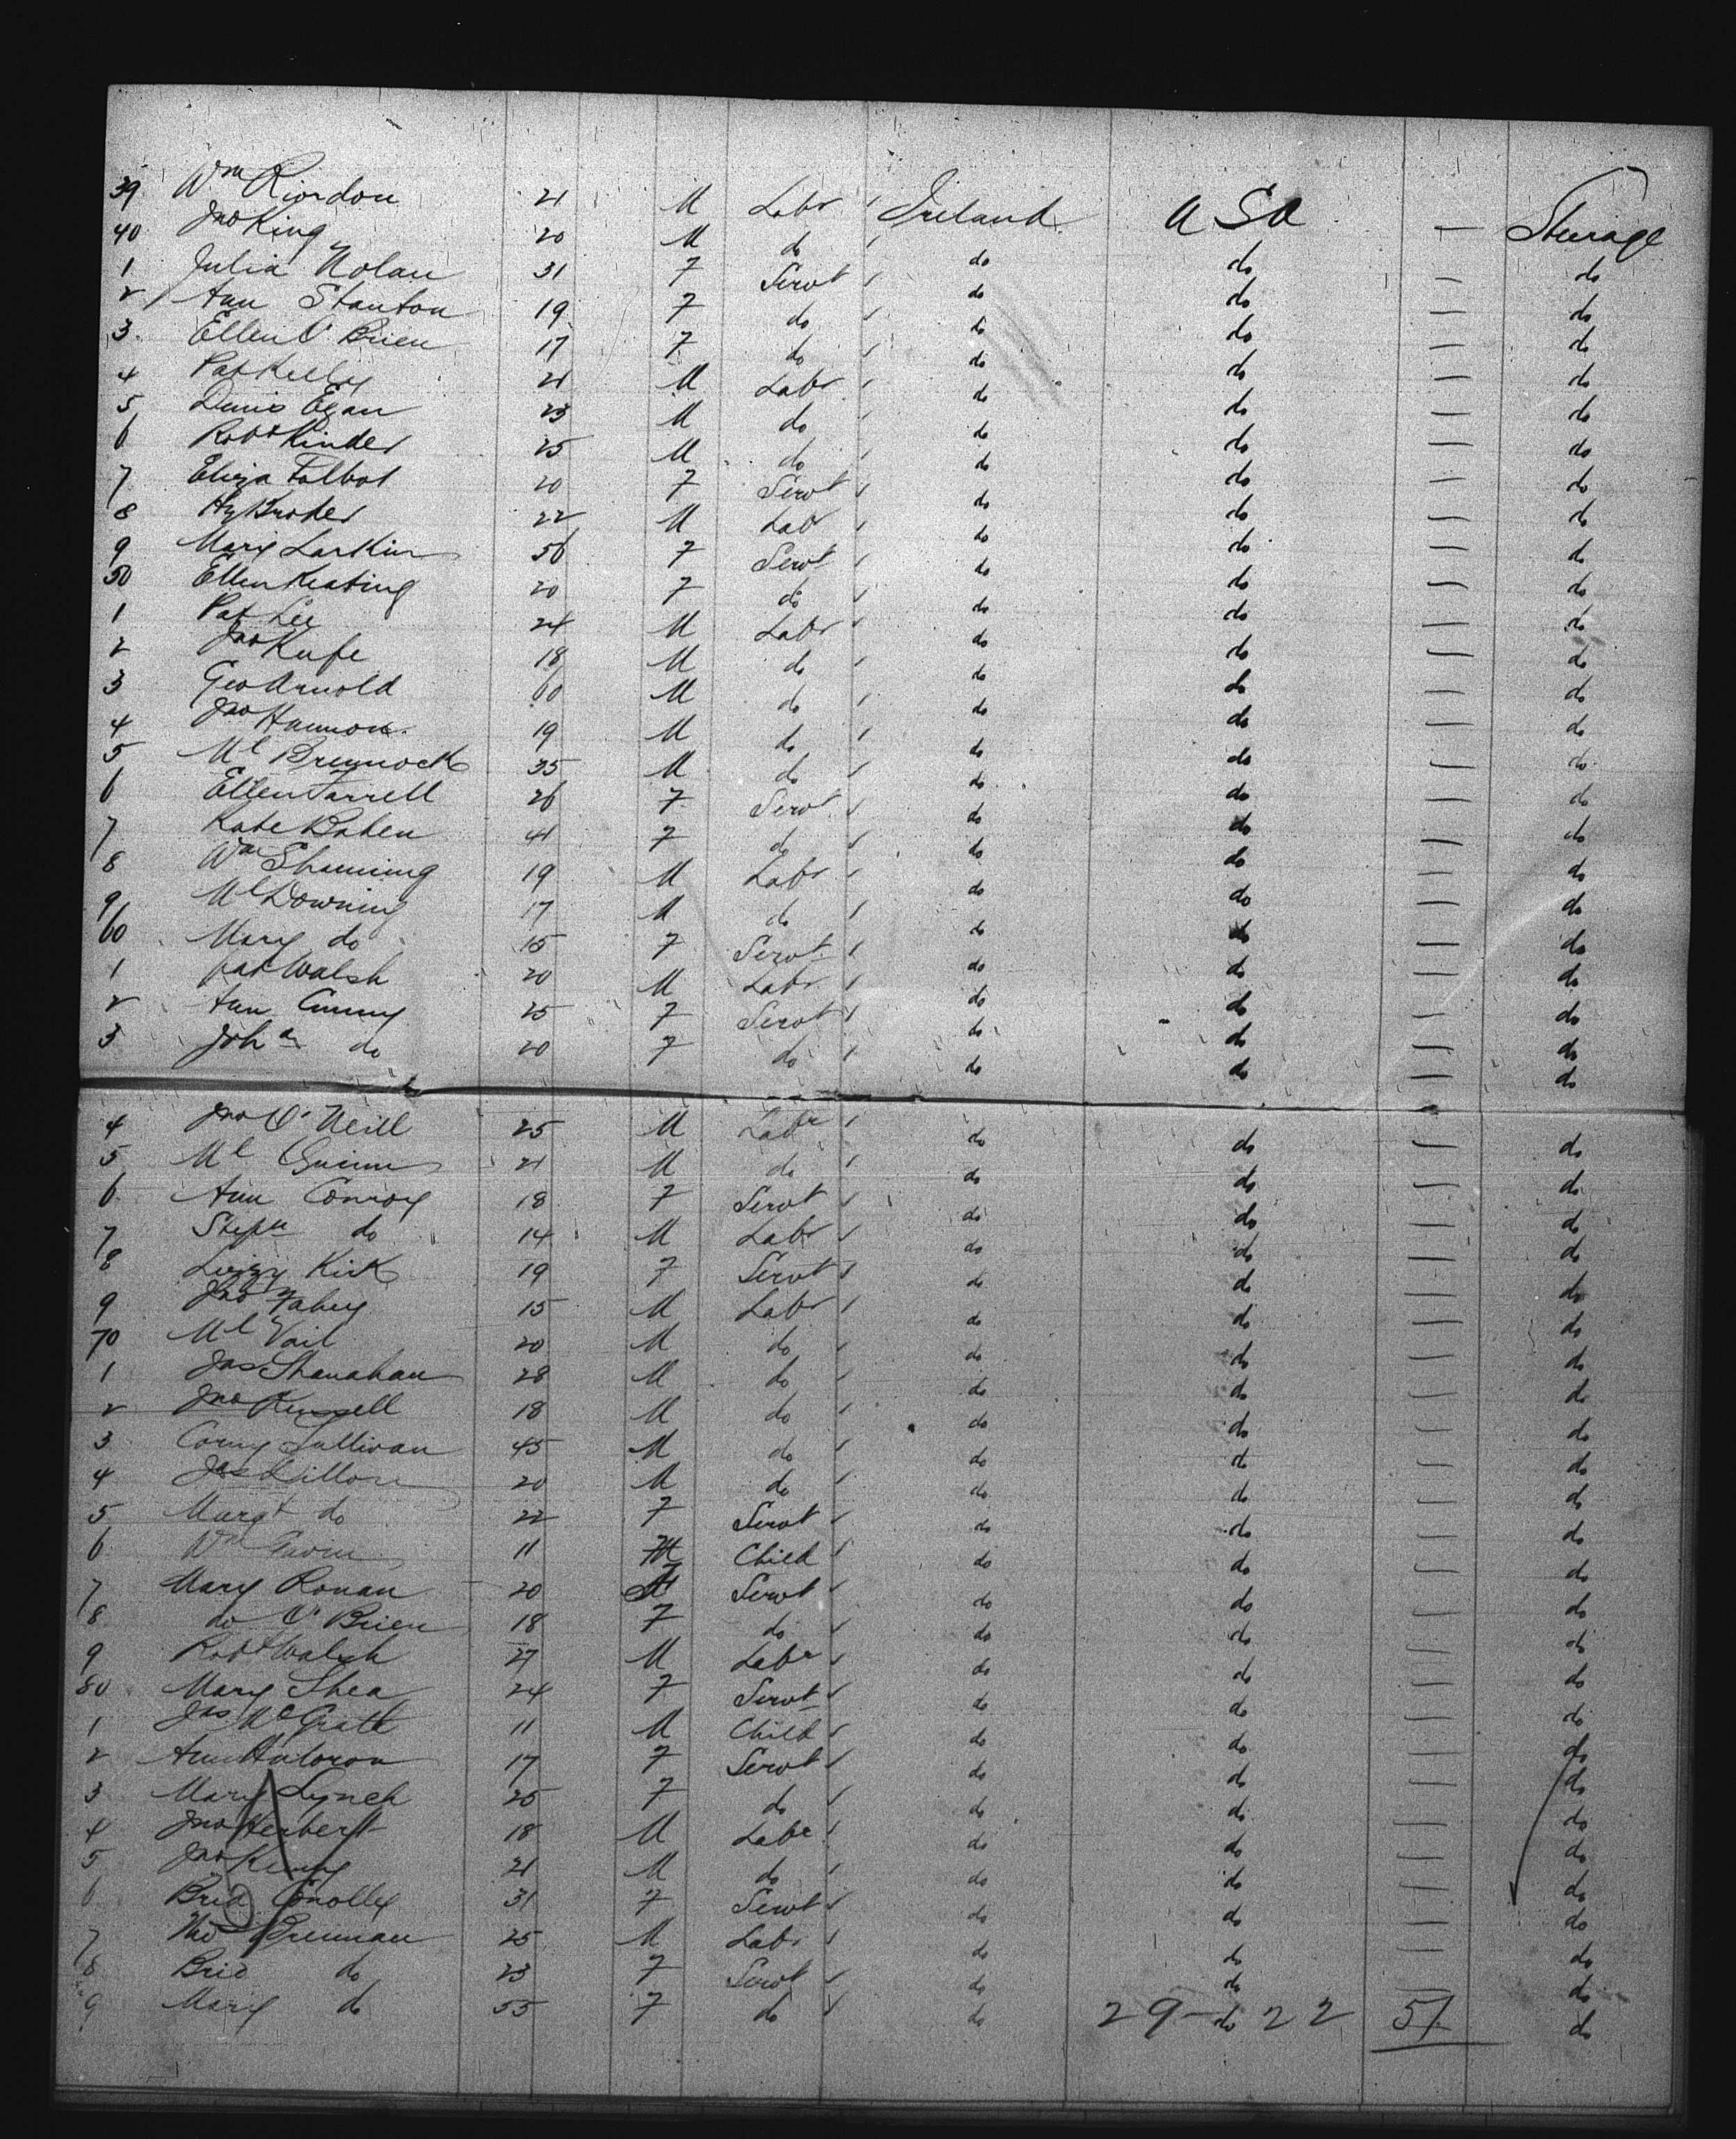 39 Wm Riordon 21 M Labr Ireland U S A — Steerage
40 Jno King 20 M do do do — do
1 Julia Nolan 31 F Servt do do — do
2 Ann Stanton 19 F do do do — do
3 Ellen O'Brien 17 F do do do — do
4 Pat Kelly 21 M Labr do do — do
5 Denis Egan 23 M do do do — do
6 Robt Kinder 25 M do do do — do
7 Eliza Talbot 20 F Servt do do — do
8 Hy 22 M Labr do do — do
9 Mary Larkin 56 F Servt do do — do
50 Ellen Keating 20 F do do do — do
1 Pat Lee 24 M Labr do do — do
2 Jno 18 M do do do — do
3 Geo Arnold 60 M do do do — do
4 Jno Hannon 19 M do do do — do
5 Ml Brennock 35 M do do do — do
6 Ellen Farrell 26 F Servt do do — do
7 Kate Bohen 41 F do do do — do
8 Wm 19 M Labr do do — do
9 Ml Downing 17 M do do do — do
60 Mary do 15 F Servt do do — do
1 Pat Walsh 20 M Labr do do — do
2 Ann 25 F Servt do do — do
3 Joha do 20 F do do do — do
4 Jno O'Neill 25 M Labr do do — do
5 Ml Quinn 21 M do do do — do
6 Ann Conroy 18 F Servt do do — do
7 Stepn do 14 M Labr do do — do
8 Lizzy Kirk 19 F Servt do do — do
9 Jno Fahey 15 M Labr do do — do
70 Ml Vail 20 M do do do — do
1 Jas Shanahan 28 M do do do — do
2 Jno 18 M do do do — do
3 Corny Sullivan 45 M do do do — do
4 Jas Dillon 20 M do do do — do
5 Margt do 22 F Servt do do — do
6 Wm 11 M Child do do — do
7 Mary Ronan 20 F Servt do do — do
8 do O'Brien 18 F do do do — do
9 Robt Walsh 27 M Labr do do — do
80 Mary Shea 24 F Servt do do — do
1 Jas McGrath 11 M Child do do — do
2 Ann Haloron 17 F Servt do do — do
3 Mary Lynch 25 F do do do — do
4 Jno Herbert 18 M Labr do do — do
5 Jno Kenny 21 M do do do — do
6 Brid Conolly 31 F Servt do do — do
7 Thos Brennan 25 M Labr do do — do
8 Brid do 23 F Servt do do — do
9 Mary do 55 F do do do do
29 - 22 51